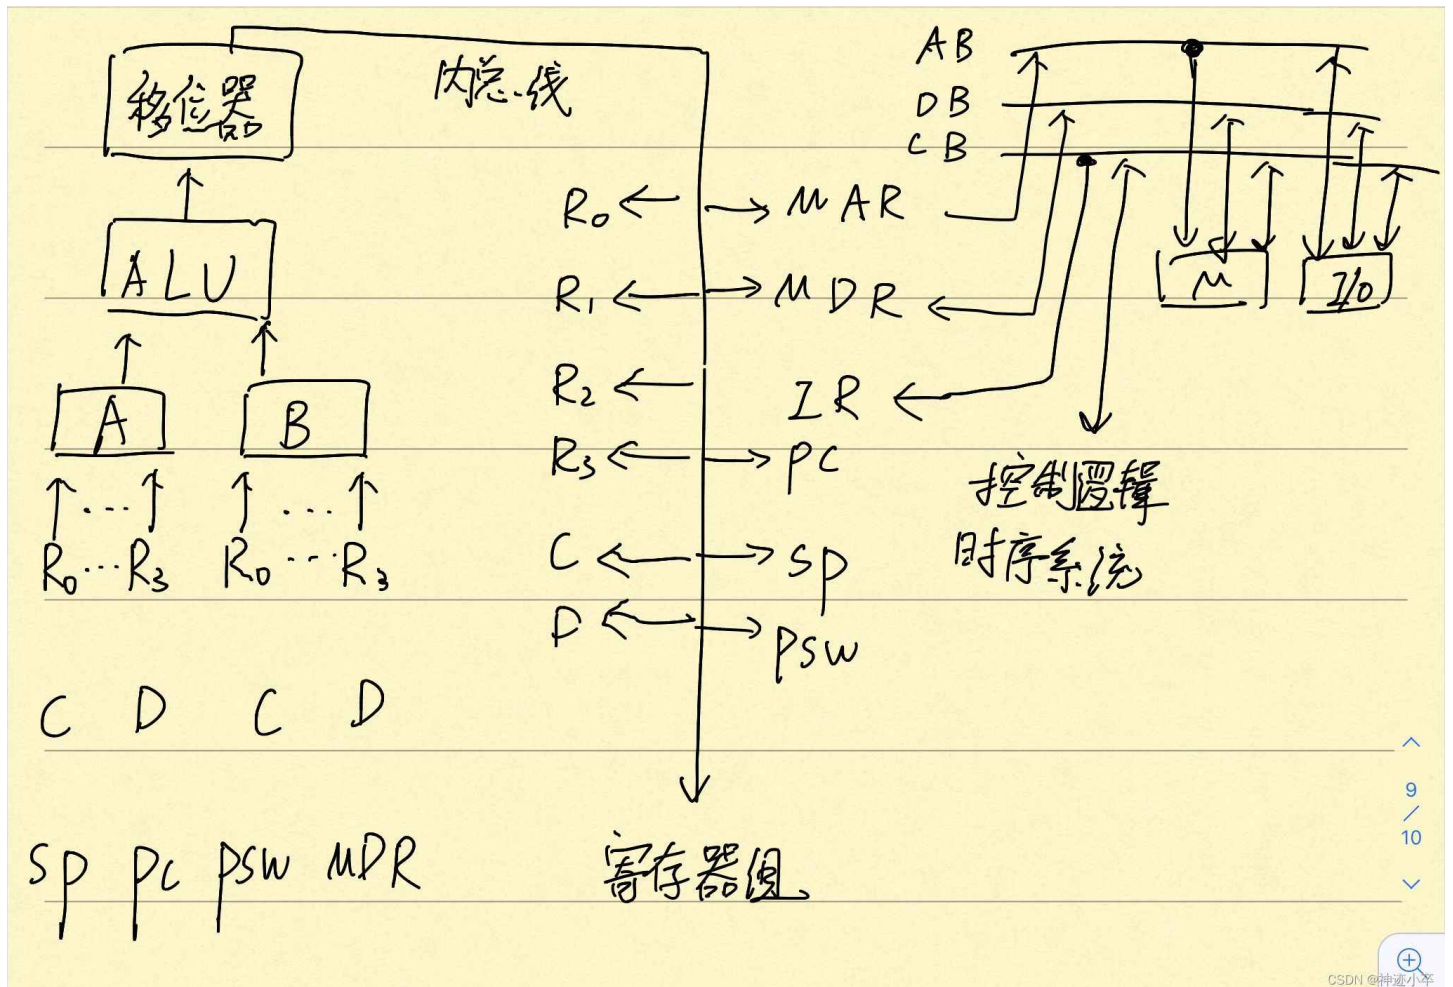 移位器
内总线
ALU
A B
R₀ ··· R₃ R₀ ··· R₃
C D C D
SP PC PSW MDR
R₀ MAR
R₁ MDR
R₂ IR
R₃ PC
C SP
D PSW
寄存器组
AB
DB
CB
M I/O
控制逻辑
时序系统
9
/
10
CSDN @神迹小卒